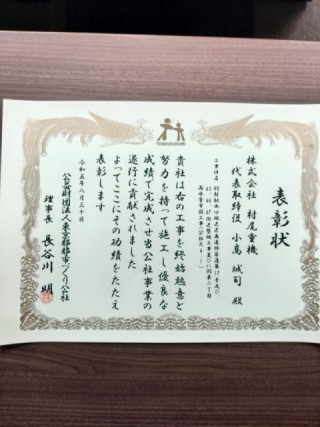 TOSHIZUKURI
表彰状
株式会社 村尾重機
代表取締役 小髙 城司 殿
工事件名
貴社は右の工事を終始熱意と
努力を持って施工し優良な
成績で完成させ当公社事業の
遂行に貢献されました
よってここにその功績をたたえ
表彰します
令和五年八月三十日
公益財団法人東京都都市づくり公社
理事長 長谷川 明